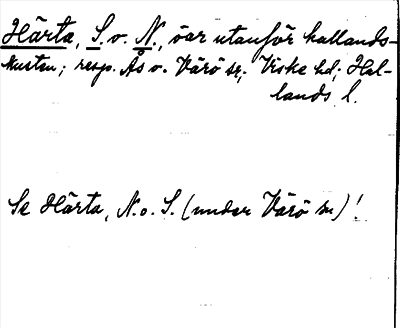 Härta, S. o. N., öar utanför hallands-
kusten; resp. Ås o. Värö sr; Viske hd; Hal-
lands l.
Se Härta, N. o. S. (under Värö sn)!